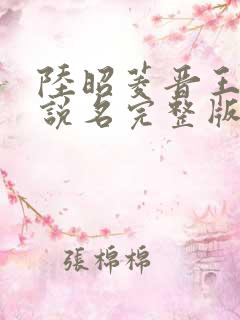 陸昭菱晋王
說名完整版
張棉棉